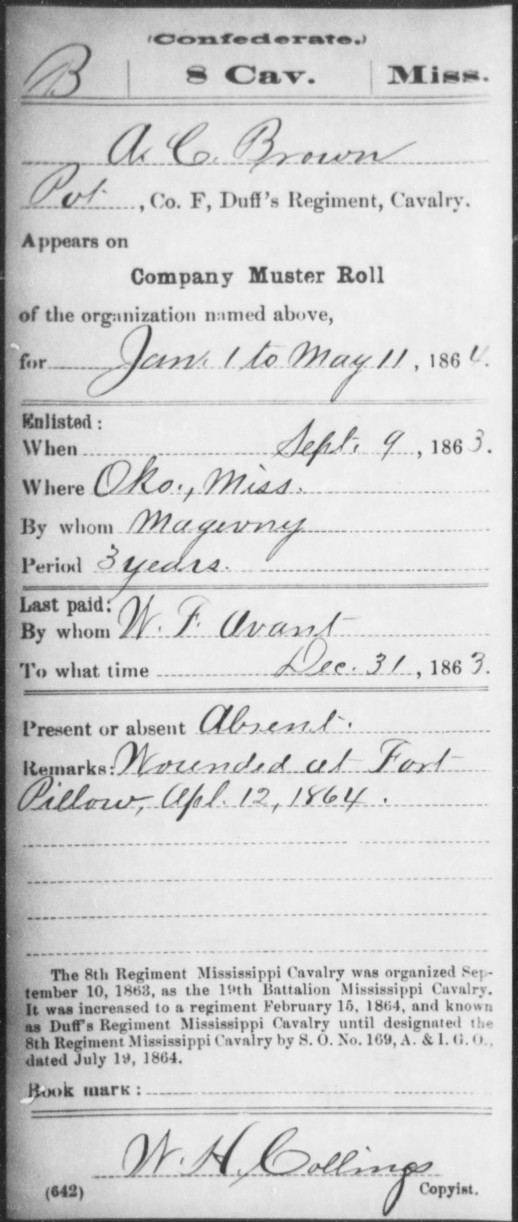 (Confederate.)
B | 8 Cav. | Miss.
A. C. Brown
Pvt, Co. F, Duff's Regiment, Cavalry.
Appears on
Company Muster Roll
of the organization named above,
for Jan. 1 to May 11, 1864.
Enlisted:
When Sept. 9, 1863.
Where Oko., Miss.
By whom Magevny
Period 3 years.
Last paid:
By whom W. F. Avant
To what time Dec. 31, 1863.
Present or absent Absent.
Remarks: Wounded at Fort
Pillow, Apl. 12, 1864.
The 8th Regiment Mississippi Cavalry was organized Sep-
tember 10, 1863, as the 19th Battalion Mississippi Cavalry.
It was increased to a regiment February 15, 1864, and known
as Duff's Regiment Mississippi Cavalry until designated the
8th Regiment Mississippi Cavalry by S. O. No. 169, A. & I. G. O.,
dated July 19, 1864.
Book mark:
W. H. Collings
(642) Copyist.